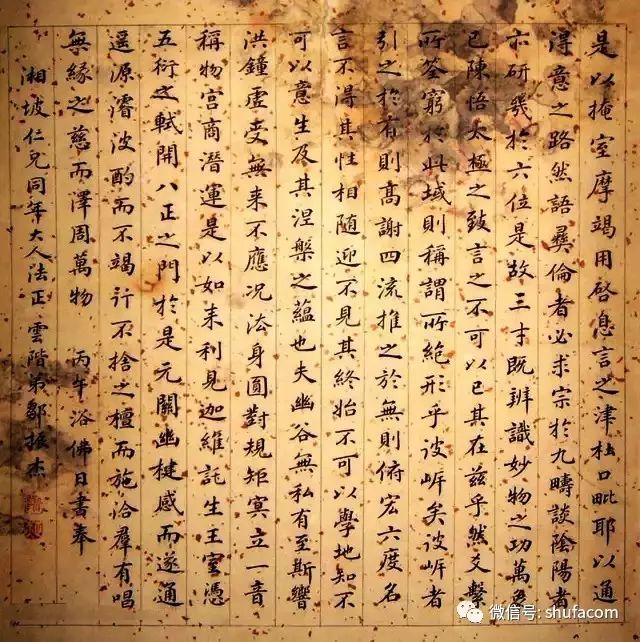 是以掩室摩竭用啓息言之津杜口毗耶以通
得意之路然語彝倫者必求宗於九疇談陰陽者
亦研幾於六位是故三才既辨識妙物之功萬象
已陳悟太極之致言之不可以已其在茲乎然爻繫
所筌窮於此域則稱謂所絕形乎彼岸矣彼岸者
引之於有則高謝四流推之於無則俯宏六度名
言不得其性相隨迎不見其終始不可以學地知不
可以意生及其涅槃之蘊也夫幽谷無私有至斯響
洪鐘虛受無来不應况法身圓對規矩冥立一音
稱物宮商潛運是以如来利見迦維託生王室憑
五衍之軾開八正之門於是元關幽楗感而遂通
遥源濬波酌而不竭行不捨之檀而施洽羣有唱
無緣之慈而澤周萬物 丙午浴佛日書奉
湘坡仁兄同年大人法正 雲階弟鄒振杰
微信号: shufacom